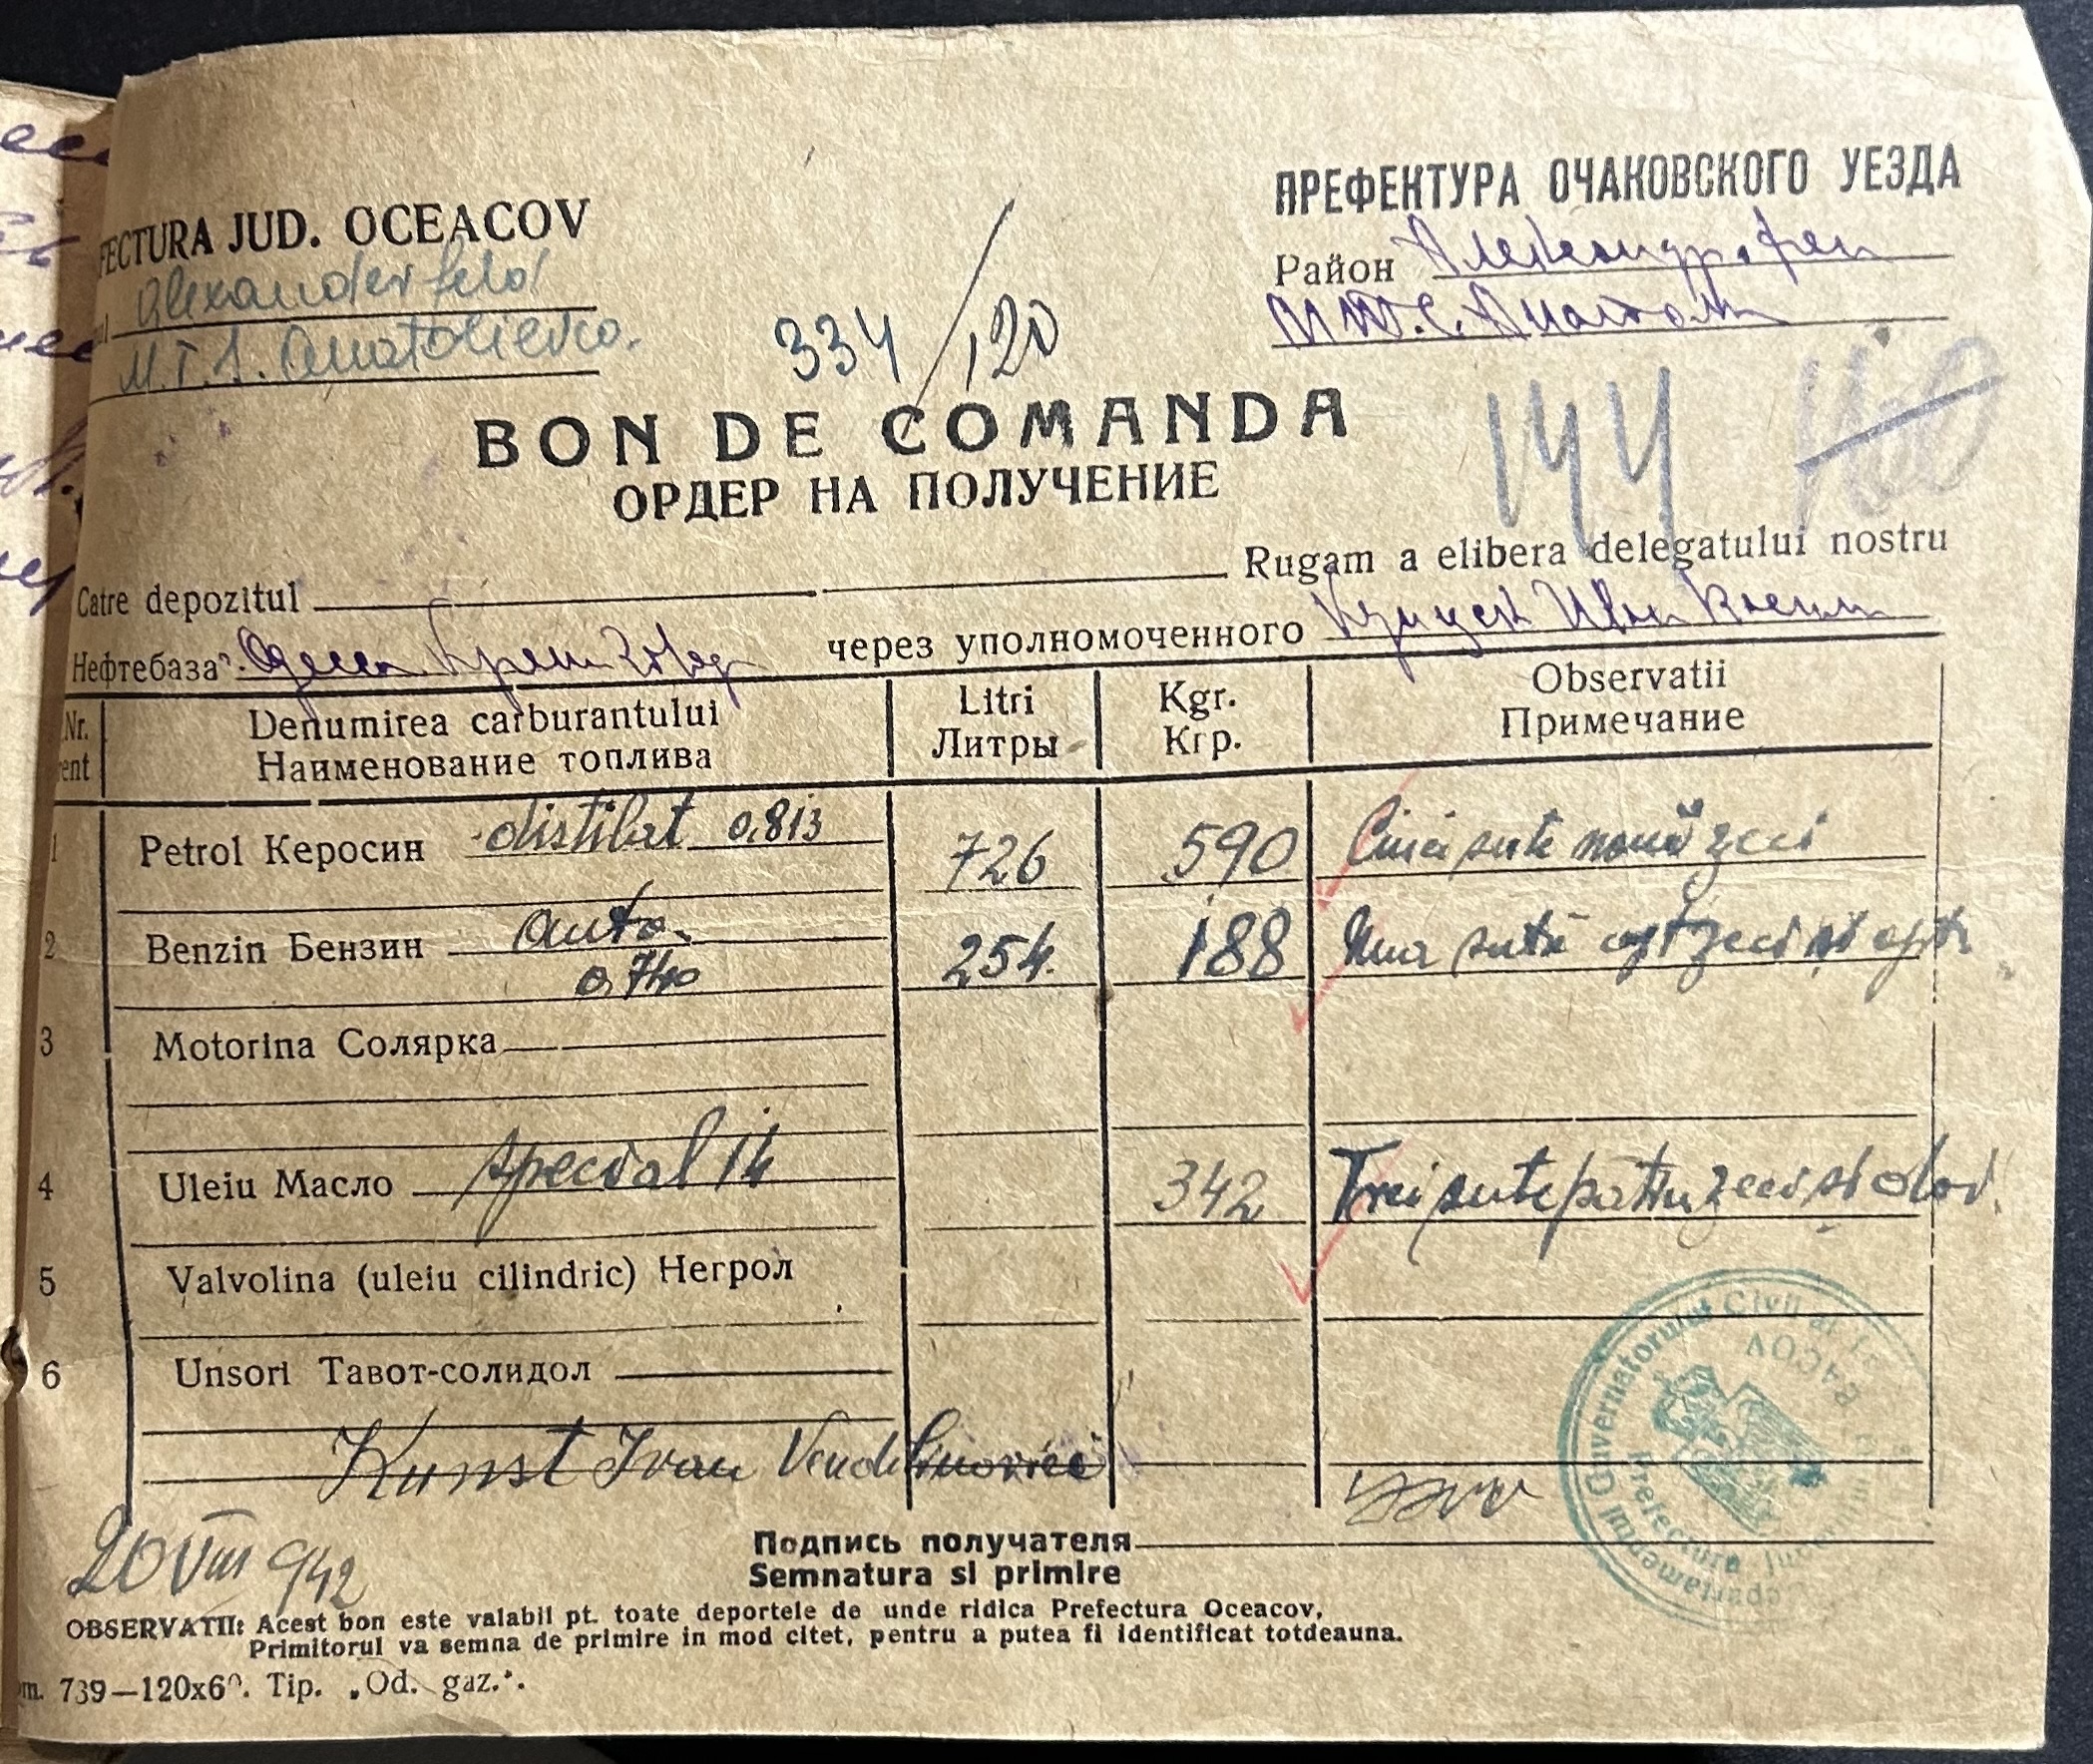 FECTURA JUD. OCEACOV
ПРЕФЕКТУРА ОЧАКОВСКОГО УЕЗДА
Alexanderfeld
Район Александрфел
M.T.S. Anatolievca.
М.Т.С. Анатол
334/120
144
BON DE COMANDA
ОРДЕР НА ПОЛУЧЕНИЕ
Catre depozitul Rugam a elibera delegatului nostru
Нефтебаза г. Одесса через уполномоченного Иван
Nr. Denumirea carburantului Litri Kgr. Observatii
ent Наименование топлива Литры Кгр. Примечание
1 Petrol Керосин distilat 0,813 726 590 Cinci sute nouă zeci
2 Benzin Бензин auto. 254. 188 Una sută opt zeci și opt
0,740
3 Motorina Солярка
4 Uleiu Масло special 14 342 Trei sute patru zeci si doi.
5 Valvolina (uleiu cilindric) Негрол
6 Unsori Тавот-солидол
Kunst Ivan Vendelinovici
20 VIII 942
Подпись получателя
Semnatura si primire
OBSERVATII: Acest bon este valabil pt. toate deportele de unde ridica Prefectura Oceacov,
Primitorul va semna de primire in mod citet, pentru a putea fi identificat totdeauna.
m. 739—120x6 . Tip. „Od. gaz.".
Guvernatorului Civil al
Prefectura